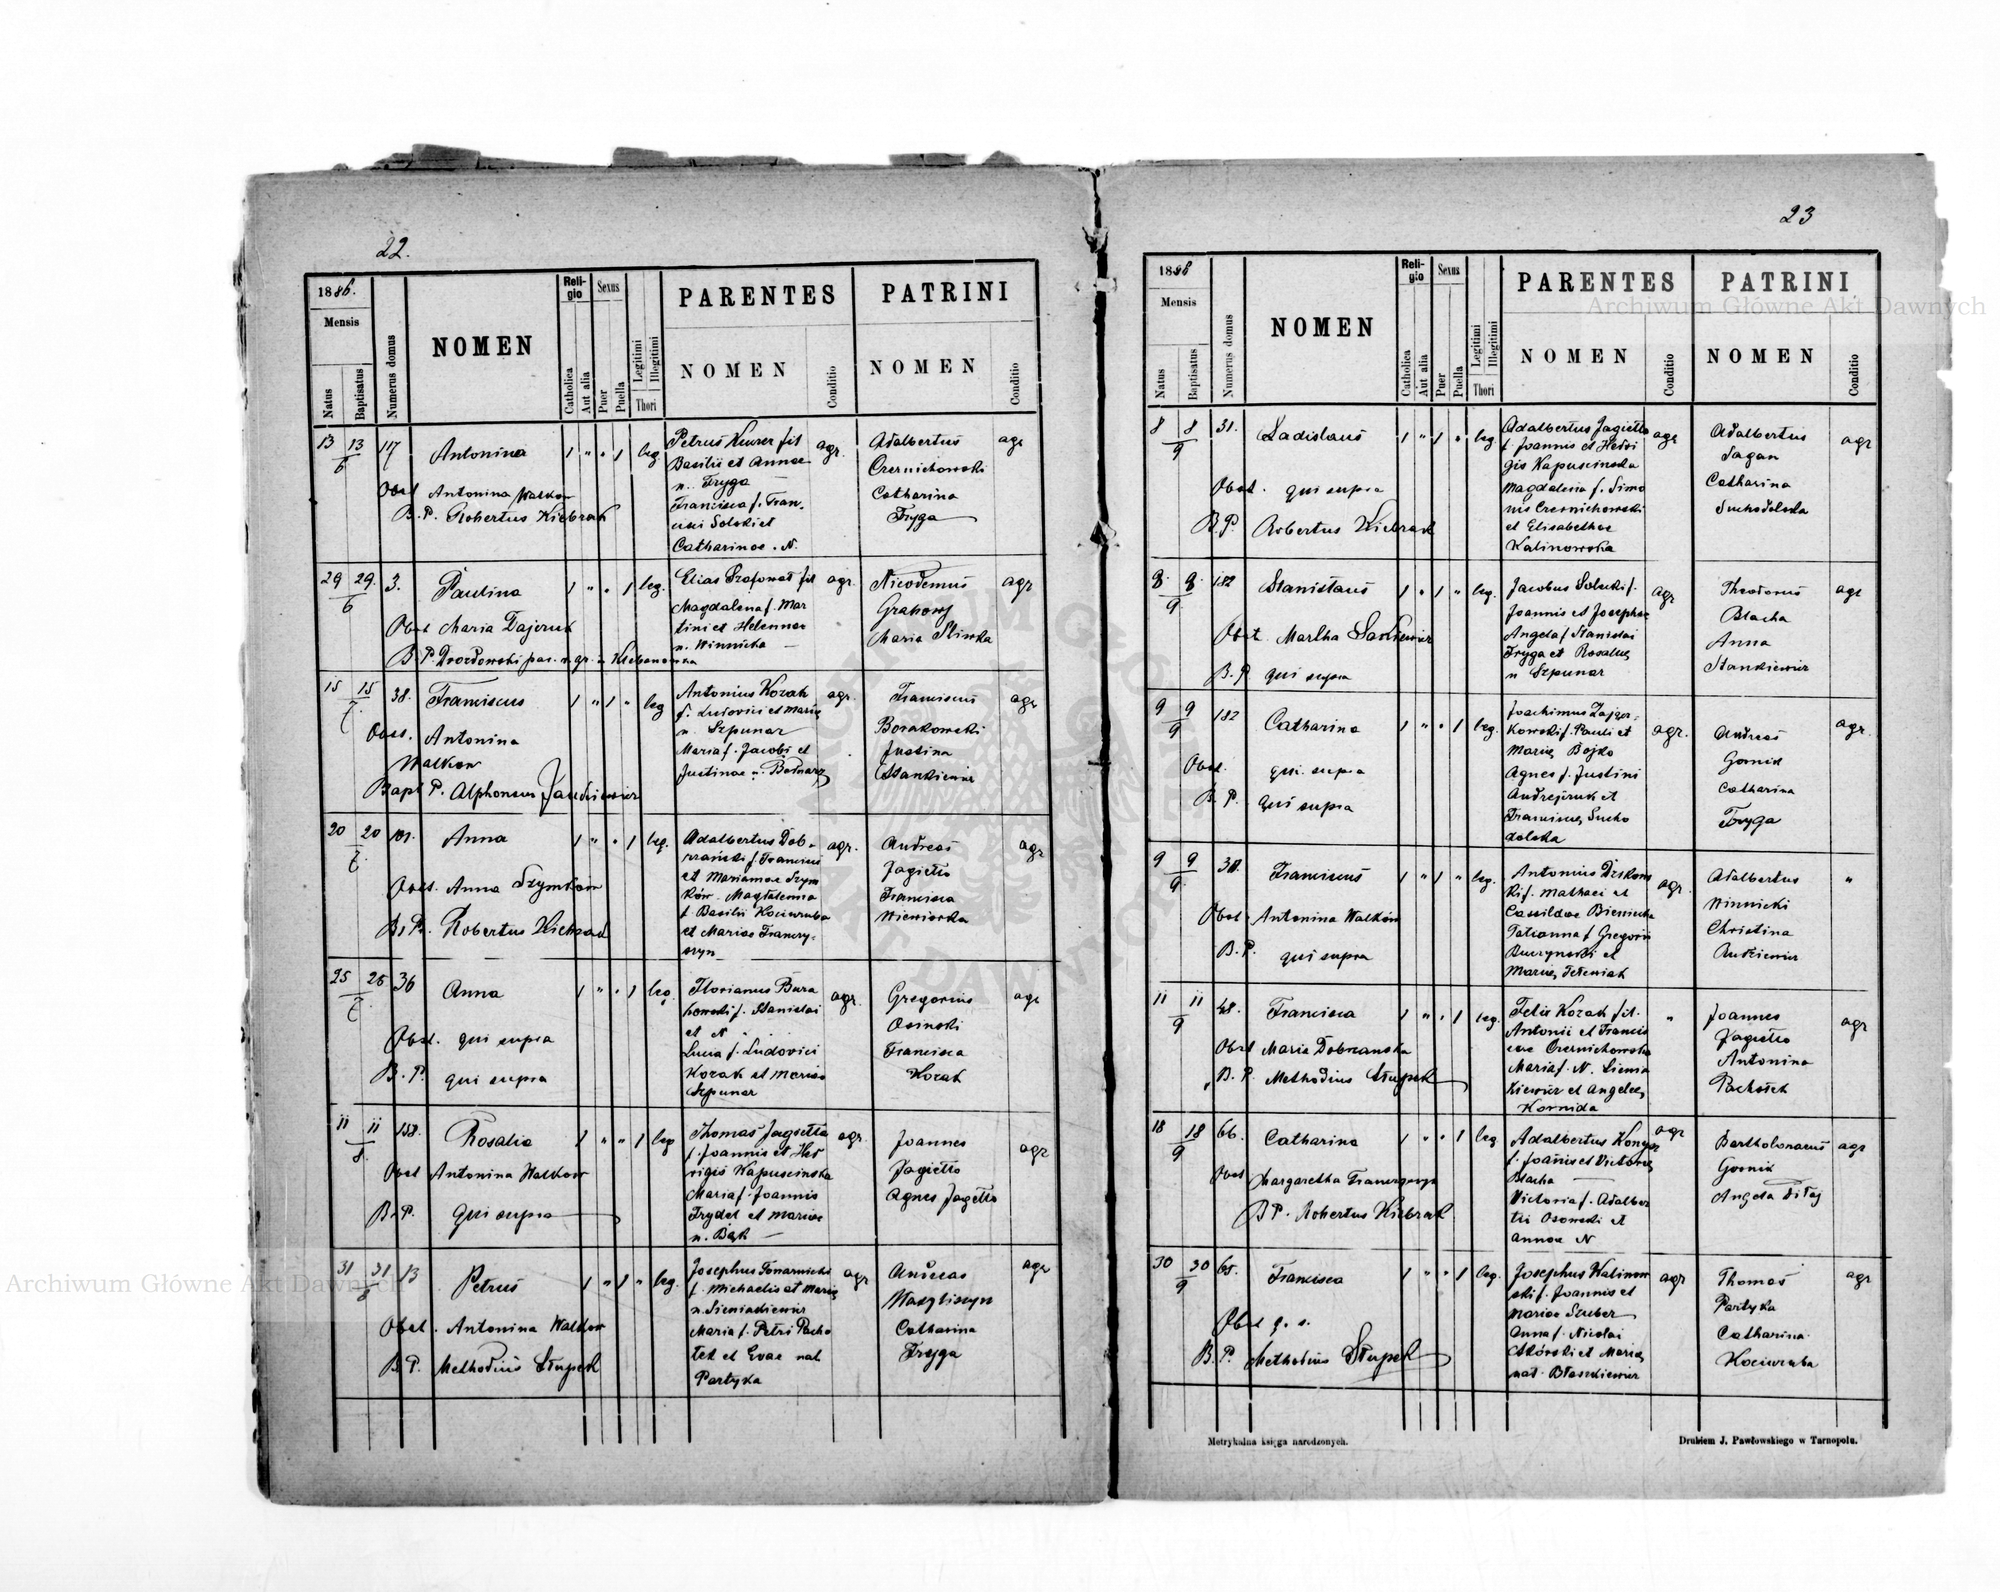 22.
1886.
Mensis
Natus
Baptisatus
Numerus domus
NOMEN
Religio
Catholica
Aut alia
Sexus
Puer
Puella
Legitimi
Illegitimi
Thori
PARENTES
NOMEN
Conditio
PATRINI
NOMEN
Conditio
13 13/6 117 Antonina 1 " " 1 leg.
Obst Antonina Walkow
B. P. Robertus Kiebzak
Petrus fil
Basilii et Annae
n. Fryga
Francisca f. Fran-
cisci Solski et
Catharinae . N.
agr.
Adalbertus
Czernichowski
Catharina
Fryga
agr
29 29/6 3. Paulina 1 " " 1 leg.
Obst Maria Dajczuk
B. P. Drozdowski
Elias fil
Magdalena f. Mar
tini et Helenae
n. Winnicka
agr.
Nicodemus
Maria Slinka
agr
15 15/7. 38. Franciscus 1 " 1 " leg
Obst. Antonina
Walkow
Bapt P. Alphonsus
Antonius Kozak
f. Ludovici et Mariae
n. Szpunar
Maria f. Jacobi et
Justinae n. Bednarz
agr.
Franciscus
Borakowski
Justina
Stankiewicz
agr
20 20/7. 101. Anna 1 " " 1 leg.
Obst. Anna Szymków
B. P. Robertus Kiebzak
Adalbertus Dob-
rzański f. Francisci
et Mariannae Szym
ków. Magdalenna
f. Basilii Kociumba
et Mariae Franczy-
szyn
agr.
Andreas
Jagiełło
Francisca
Wiewiorka
agr
25 25/7. 36 Anna 1 " " 1 leg.
Obst. qui supra
B. P. qui supra
Florianus Bura
kowski f. Stanislai
et N
Lucia f. Ludovici
Kozak et Mariae
Szpunar
agr.
Gregorius
Osinski
Francisca
Kozak
agr
11 11/8 158. Rosalia 1 " " 1 leg
Obst Antonina Walkow
B. P. Qui supra
Thomas Jagiełło
f. Joannis et Hed
vigis Kapuscinska
Maria f. Joannis
Frydel et Mariae
n. Bąk
agr.
Joannes
Jagiełło
Agnes Jagiełło
agr
31 31/8 13 Petrus 1 " 1 " leg.
Obst. Antonina Walkow
B. P. Methodius Słupek
Josephus Tonarnicki
f. Michaelis et Mariae
n. Sieniakiewicz
Maria f. Petri Pacho
łek et Evae nat
Partyka
agr
Andreas
Wasyliszyn
Catharina
Fryga
agr
23
1886
Mensis
Natus
Baptisatus
Numerus domus
NOMEN
Religio
Catholica
Aut alia
Sexus
Puer
Puella
Legitimi
Illegitimi
Thori
PARENTES
NOMEN
Conditio
PATRINI
NOMEN
Conditio
8 8/9 31. Ladislaus 1 " 1 " leg
Obst. qui supra
B. P. Robertus Kiebzak
Adalbertus Jagiełło
f. Joannis et Hedvi
gis Kapuscinska
Magdalena f. Simo
nis Czernichowski
et Elisabethae
Kalinowska
agr
Adalbertus
Sagan
Catharina
Suchodolska
agr
8. 8./9 182 Stanislaus 1 " 1 " leg.
Obst. Martha Saskiewicz
B. P. qui supra
Jacobus Solecki f.
Joannis et Josephae
Angela f Stanislai
Fryga et Rosaliae
n Szpunar
agr
Theodorus
Blacha
Anna
Stankiewicz
agr
9 9/9 182 Catharina 1 " " 1 leg.
Obst. qui supra
B. P. qui supra
Joachimus Zajger-
kowski f. Pauli et
Mariae Bojko
Agnes f. Justini
Andrejczuk et
Franciscae Sucho
dolska
agr.
Andreas
Gornik
Catharina
Fryga
agr.
9 9/9. 38. Franciscus 1 " 1 " leg.
Obst. Antonina Walków
B. P. qui supra
Antonius
ki f. Mathaei et
Cassildae Bieniecka
Tatianna f Gregorii
Buczynski et
Mariae
agr.
Adalbertus
Winnicki
Christina
Audziewicz
"
11 11/9 48. Francisca 1 " " 1 leg.
Obst Maria Dobrzanska
B. P. Methodius Słupek
Felix Kozak fil.
Antonii et Francis
cae Czernichowska
Maria f. N. Sienia
kiewicz et Angelae
Kornida
"
Joannes
Jagiełło
Antonina
Pachołek
agr
18 18/9 66. Catharina 1 " " 1 leg
Obst Margaretha Franczyszyn
B P. Robertus Kiebzak
Adalbertus
f. Joannis et Victoriae
Blacha
Victoria f. Adalber
ti Osowski et
Annae N
agr
Bartholomaeus
Gornik
Angela Diłaj
agr
30 30/9 65. Francisca 1 " " 1 leg.
Obst q. s.
B. P. Methodius Słupek
Josephus Kalinow
ski f. Joannis et
Mariae Szuber
Anna f. Nicolai
Skórski et Mariae
nat. Błaszkiewicz
agr
Thomas
Partyka
Catharina
Kociumba
agr
Metrykalna księga narodzonych.
Drukiem J. Pawłowskiego w Tarnopolu.
Archiwum Główne Akt Dawnych
Archiwum Główne Akt Dawnych